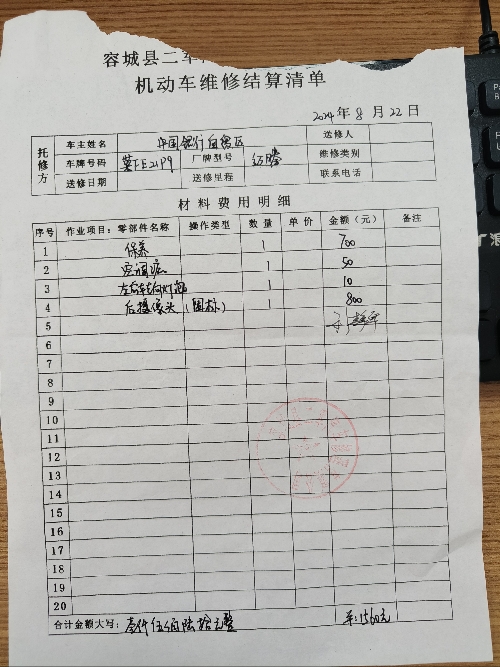 容城县二车
机动车维修结算清单
2024年8月22日
托修方 车主姓名 中国银行 送修人
车牌号码 冀FE21P9 厂牌型号 迈腾 维修类别
送修日期 送修里程 联系电话
材料费用明细
序号 作业项目:零部件名称 操作类型 数量 单价 金额(元) 备注
1 保养 1 700
2 空调滤 1 50
3 左后转向灯泡 1 10
4 后摄像头 (图标) 1 800
5
6
7
8
9
10
11
12
13
14
15
16
17
18
19
20
合计金额大写: 壹仟伍佰陆拾元整 ¥:1560元